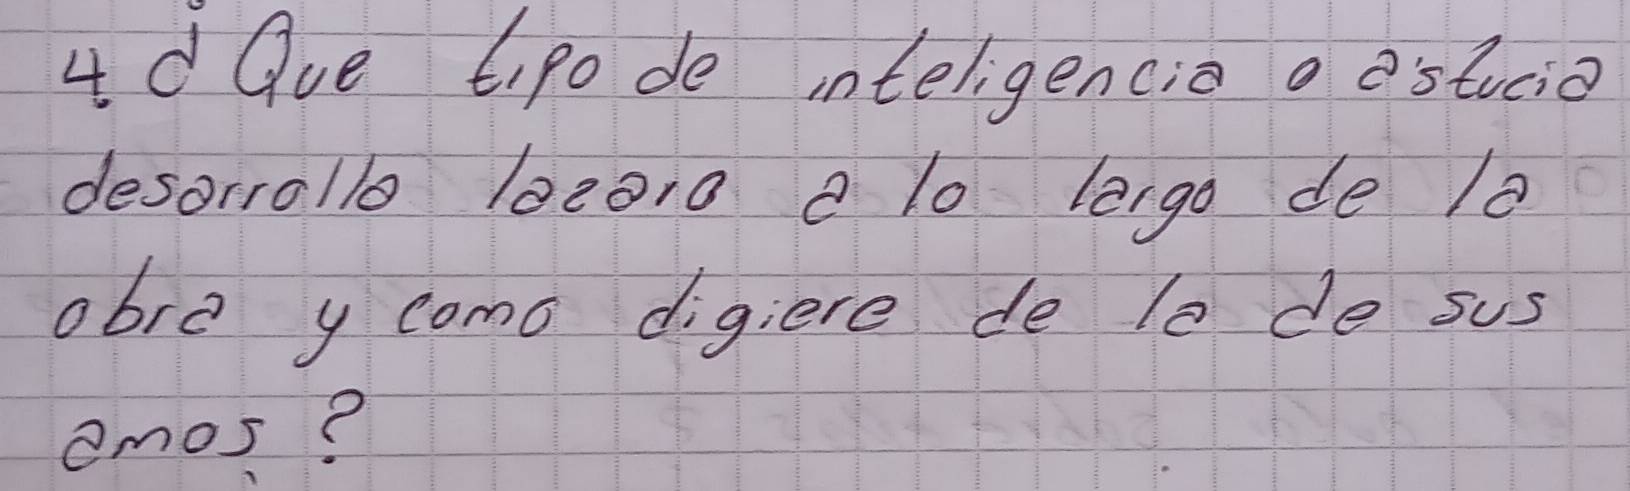 4. d Que tipo de inteligencia o astucia
desarrollo lazaro a lo largo de la
obra y como digiere de la de sus
amos?